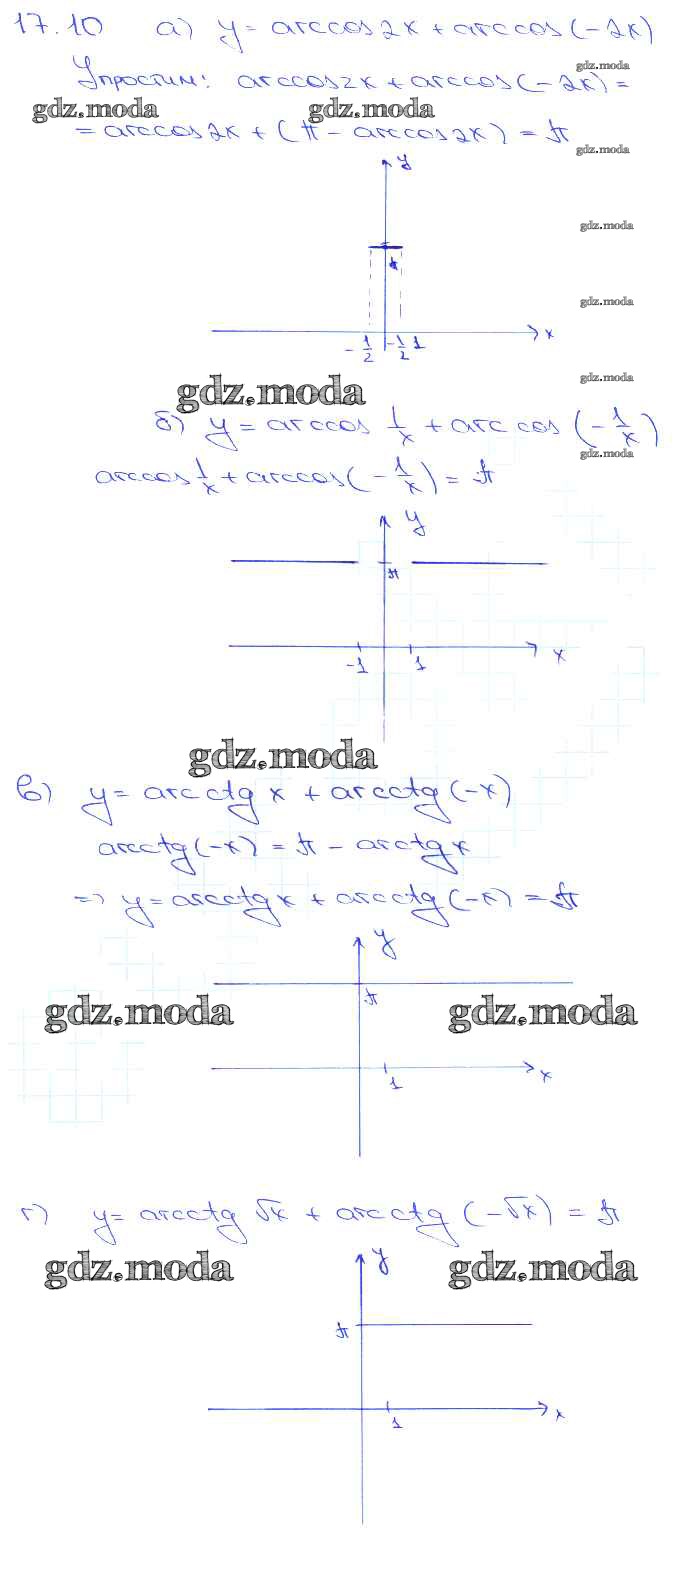 17.10 а) y = arccos 2x + arccos (-2x)
Упростим: arccos 2x + arccos (-2x) =
gdz.moda
gdz.moda gdz.moda
= arccos 2x + (π - arccos 2x) = π
gdz.moda
y
gdz.moda
π
gdz.moda
x
-1/2 -1/2 1
gdz.moda gdz.moda
б) y = arccos 1/x + arccos (-1/x)
gdz.moda
arccos 1/x + arccos (-1/x) = π
y
π
-1 1 x
gdz.moda
в) y = arcctg x + arcctg (-x)
arcctg (-x) = π - arctg x
=> y = arcctg x + arcctg (-x) = π
y
π
gdz.moda gdz.moda
1 x
г) y = arcctg √x + arcctg (-√x) = π
y
gdz.moda gdz.moda
π
1 x